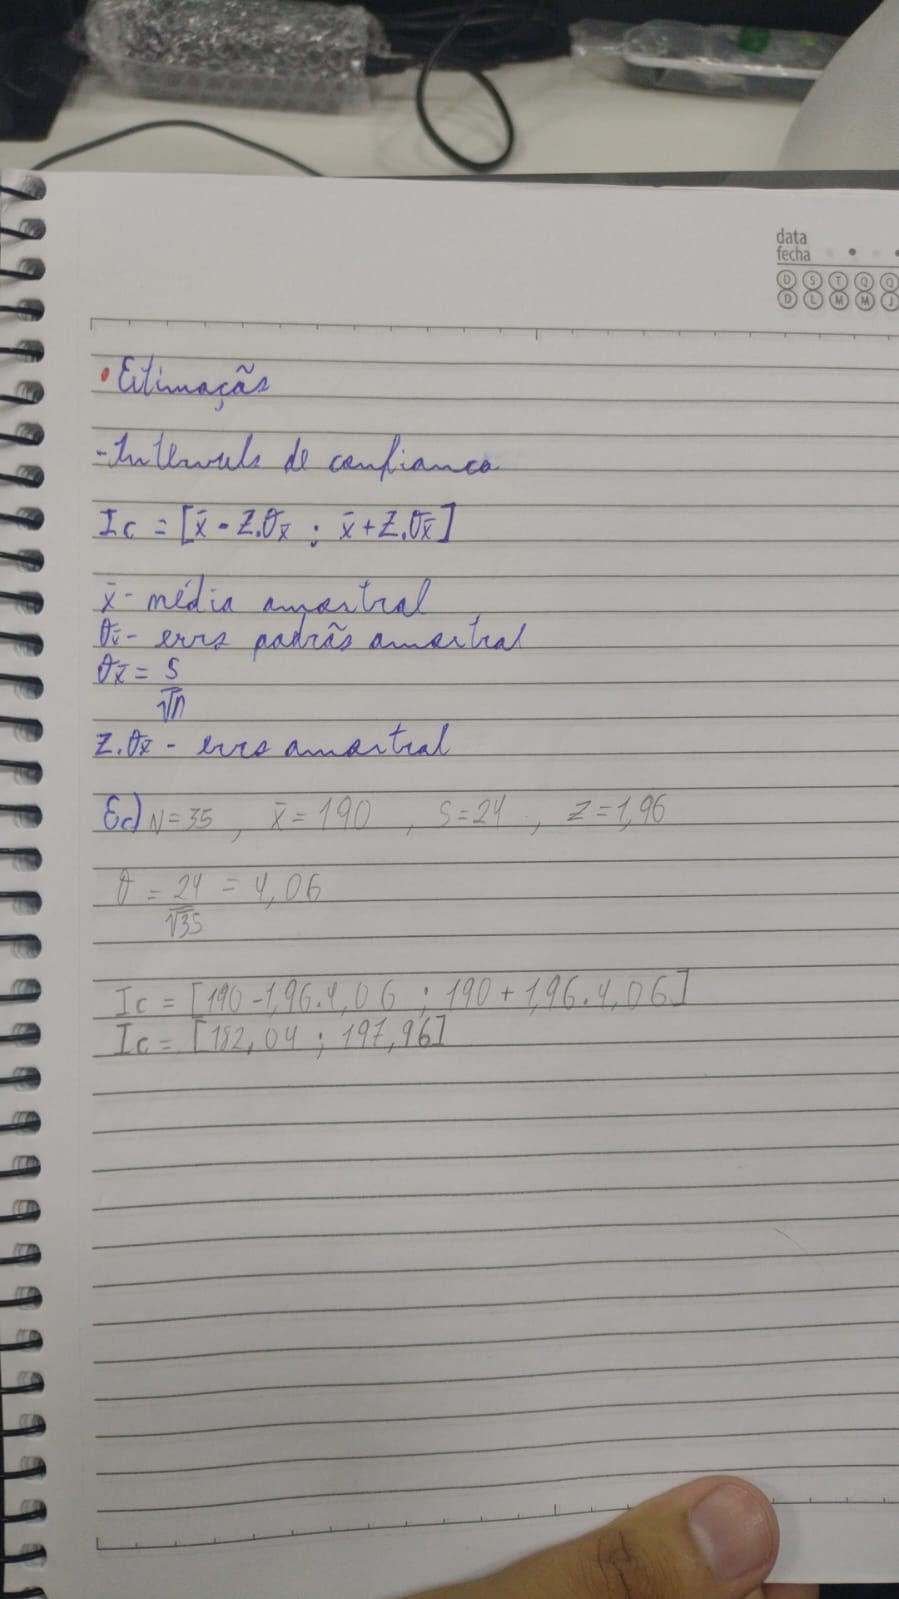 data
fecha
D S T Q Q
D L M M J
• Estimação
- Intervalo de confiança
Ic = [x̄ - Z.σx̄ ; x̄ + Z.σx̄]
x̄ - média amostral
σx̄ - erro padrão amostral
σx̄ = S
√n
Z.σx̄ - erro amostral
Ex) N = 35 , x̄ = 190 , S = 24 , Z = 1,96
σ = 24 = 4,06
√35
Ic = [190 - 1,96.4,06 ; 190 + 1,96.4,06]
Ic = [182,04 ; 197,96]